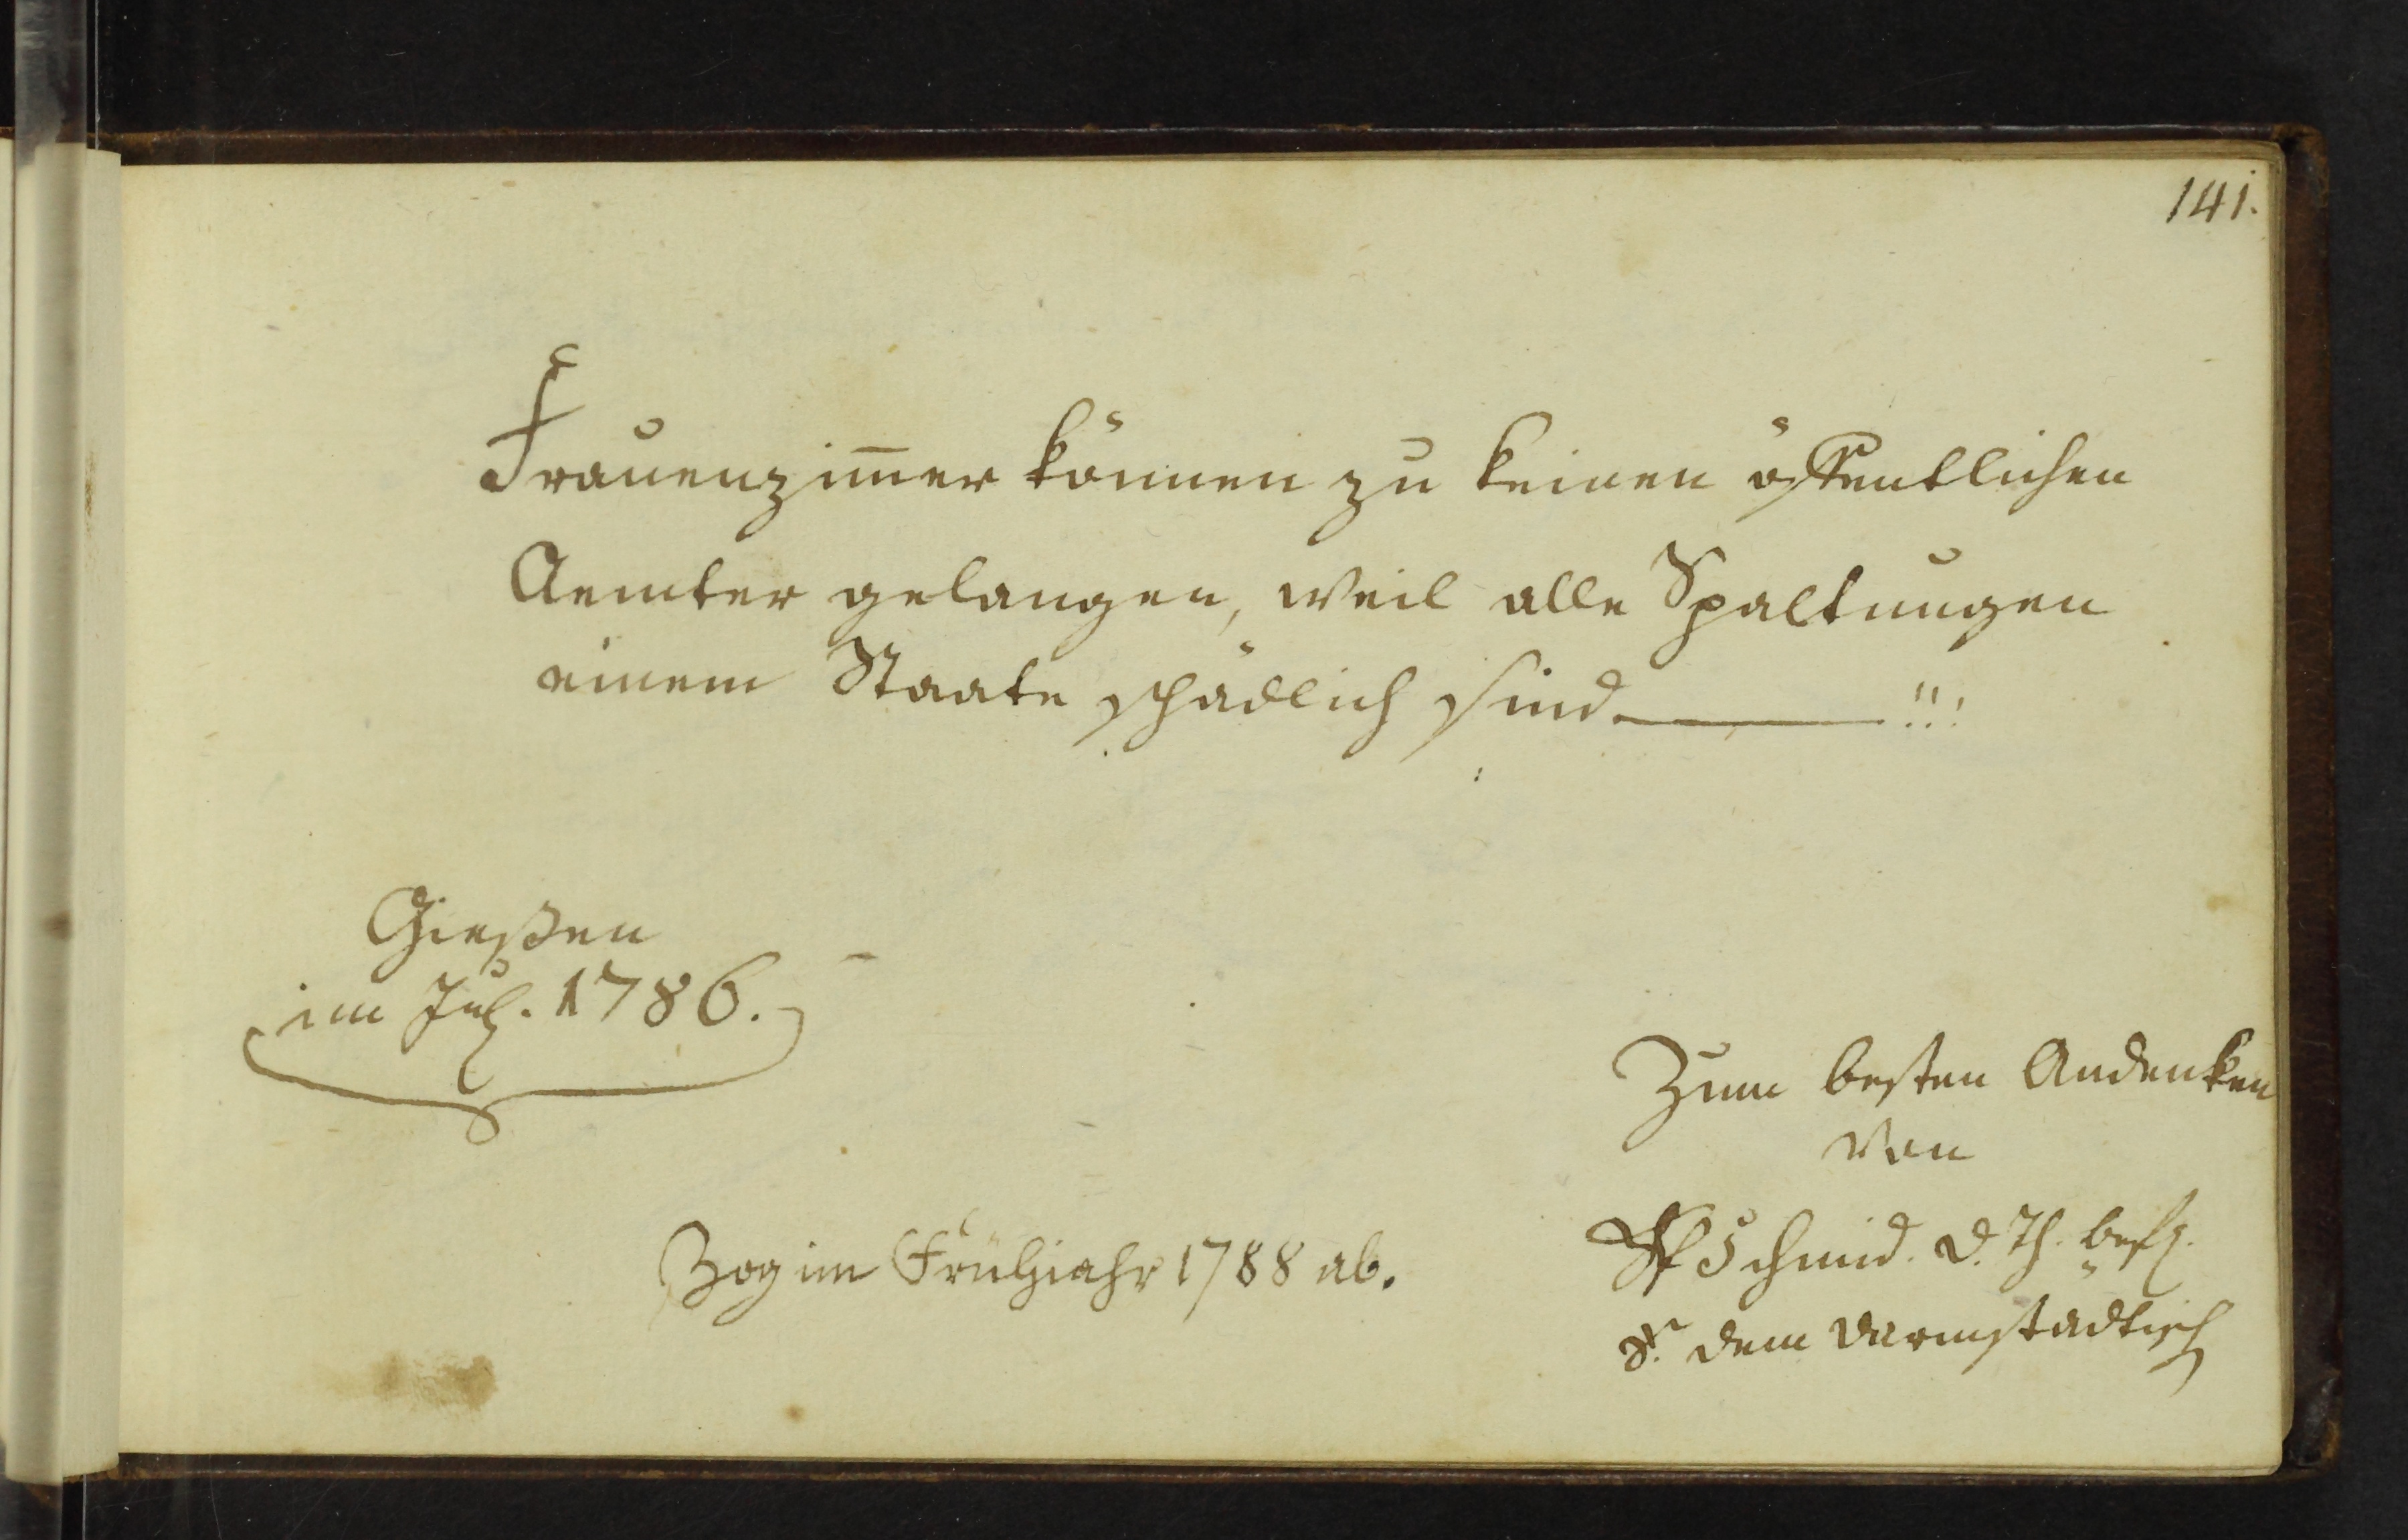 141.
Frauenzim̅er können zu keinen öffentlichen
Aemter gelangen, weil alle Spaltungen
einem Staate schädlich sind ——— !!!
Gießen
im Jul. 1786.
Zum besten Andenken
von
Schmid. d. Th. befl.
dem Darmstädtisch
Zog im Frühjahr 1788 ab.